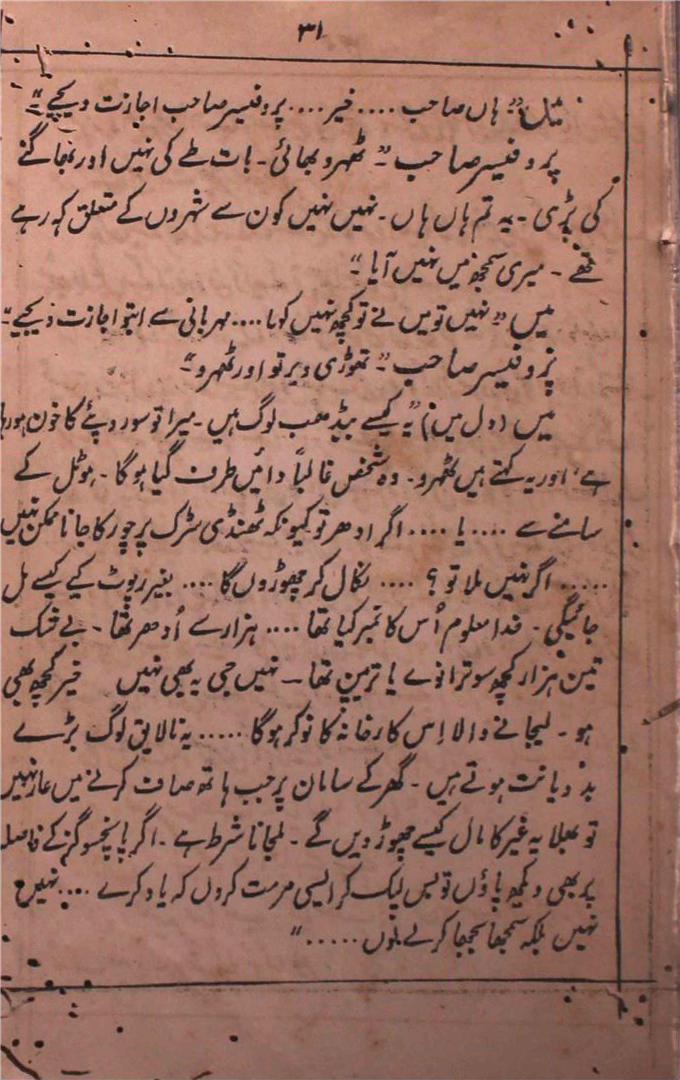 ۳۱
میں "ہاں صاحب .... خیر .... پروفیسر صاحب اجازت دیجیے"
پروفیسر صاحب "ٹھہرو بھائی۔ بات طے کی نہیں اور بھاگنے
کی پڑی۔ یہ تم ہاں ہاں۔ نہیں نہیں کون سے شہروں کے متعلق کہہ رہے
تھے۔ میری سمجھ میں نہیں آیا"
میں "نہیں تو میں نے تو کچھ نہیں کہا .... مہربانی سے ابتو اجازت دیجیے"
پروفیسر صاحب "تھوڑی دیر تو اور ٹھہرو"
میں (دل میں) "یہ کیسے بیڈھب لوگ ہیں۔ میرا تو سو روپئے کا خون ہو رہا
ہے، اور یہ کہتے ہیں ٹھہرو۔ وہ شخص غالباً دائیں طرف گیا ہوگا۔ ہوٹل کے
سامنے سے .... یا .... اگر ادھر تو کیونکہ ٹھنڈی سڑک پر چور کا جانا ممکن نہیں
..... اگر نہیں ملا تو؟ .... نکال کر چھوڑوں گا .... بغیر رپوٹ کیے کیسے مل
جائیگی۔ خدا معلوم اُس کا نمبر کیا تھا .... ہزار سے اُدھر تھا۔ بے شک
تین ہزار کچھ سو ترانوے یا ترپن تھا ۔ نہیں جی یہ بھی نہیں خیر کچھ بھی
ہو۔ لیجانے والا اِس کارخانہ کا نوکر ہوگا ..... یہ نالایق لوگ بڑے
بددیانت ہوتے ہیں۔ گھر کے سامان پر جب ہاتھ صاف کرنے میں عار نہیں
تو بھلا یہ غیر کا مال کیسے چھوڑ دیں گے۔ لمجانا شرط ہے۔ اگر پانچسو گز کے فاصلہ
پر بھی دیکھ پاؤں تو بس لپک کر ایسی مرمت کروں کہ یاد کرے .... نہیں
نہیں بلکہ سمجھا سمجھا کر لے لوں ....."